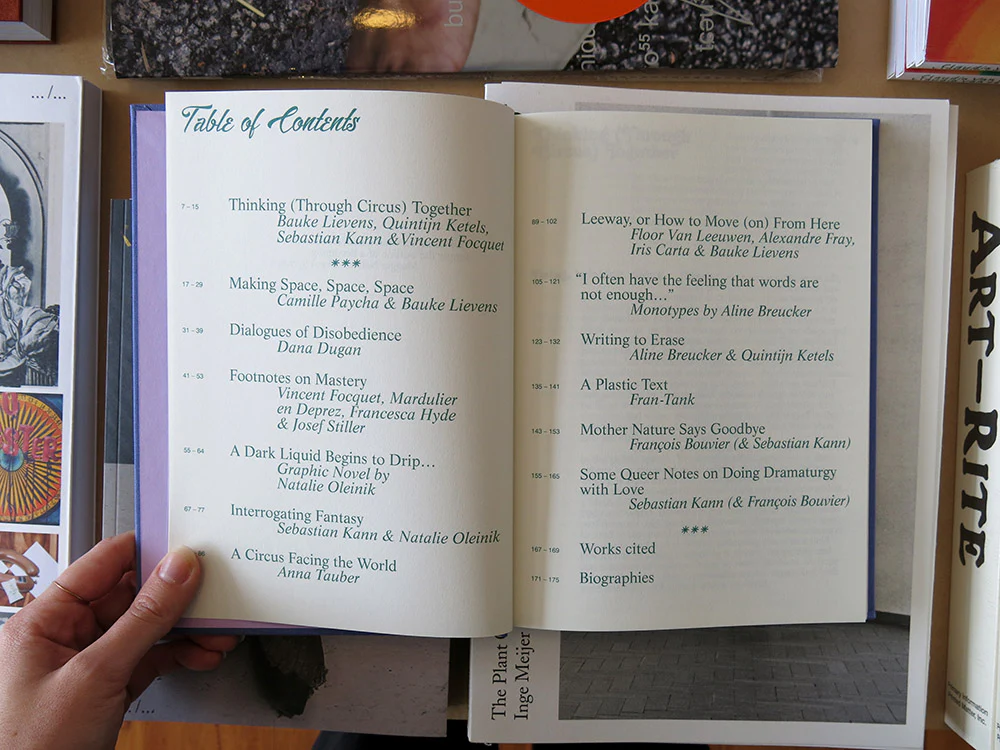 Table of Contents
7 – 15
Thinking (Through Circus) Together
Bauke Lievens, Quintijn Ketels,
Sebastian Kann &Vincent Focquet
***
17 – 29
Making Space, Space, Space
Camille Paycha & Bauke Lievens
31 – 39
Dialogues of Disobedience
Dana Dugan
41 – 53
Footnotes on Mastery
Vincent Focquet, Mardulier
en Deprez, Francesca Hyde
& Josef Stiller
55 – 64
A Dark Liquid Begins to Drip…
Graphic Novel by
Natalie Oleinik
67 – 77
Interrogating Fantasy
Sebastian Kann & Natalie Oleinik
86
A Circus Facing the World
Anna Tauber
89 – 102
Leeway, or How to Move (on) From Here
Floor Van Leeuwen, Alexandre Fray,
Iris Carta & Bauke Lievens
105 – 121
“I often have the feeling that words are
not enough…”
Monotypes by Aline Breucker
123 – 132
Writing to Erase
Aline Breucker & Quintijn Ketels
135 – 141
A Plastic Text
Fran-Tank
143 – 153
Mother Nature Says Goodbye
François Bouvier (& Sebastian Kann)
155 – 165
Some Queer Notes on Doing Dramaturgy
with Love
Sebastian Kann (& François Bouvier)
***
167 – 169
Works cited
171 – 175
Biographies
.../...
The Plant
Inge Meijer
ART–RITE